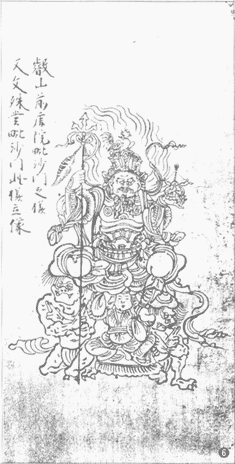 叡山前唐院毗沙門之様
又文殊堂毗沙門此様立像
6